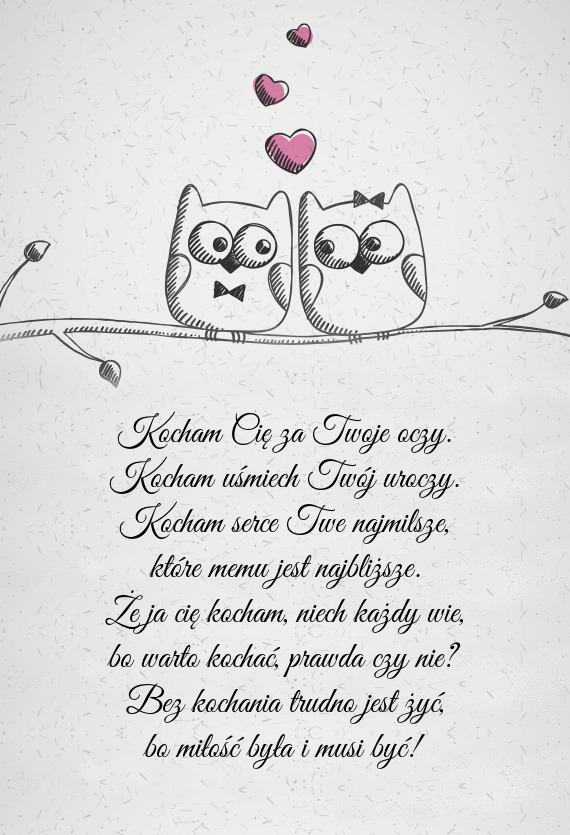 Kocham Cię za Twoje oczy.
Kocham uśmiech Twój uroczy.
Kocham serce Twe najmilsze,
które memu jest najbliższe.
Że ja cię kocham, niech każdy wie,
bo warto kochać, prawda czy nie?
Bez kochania trudno jest żyć,
bo miłość była i musi być!